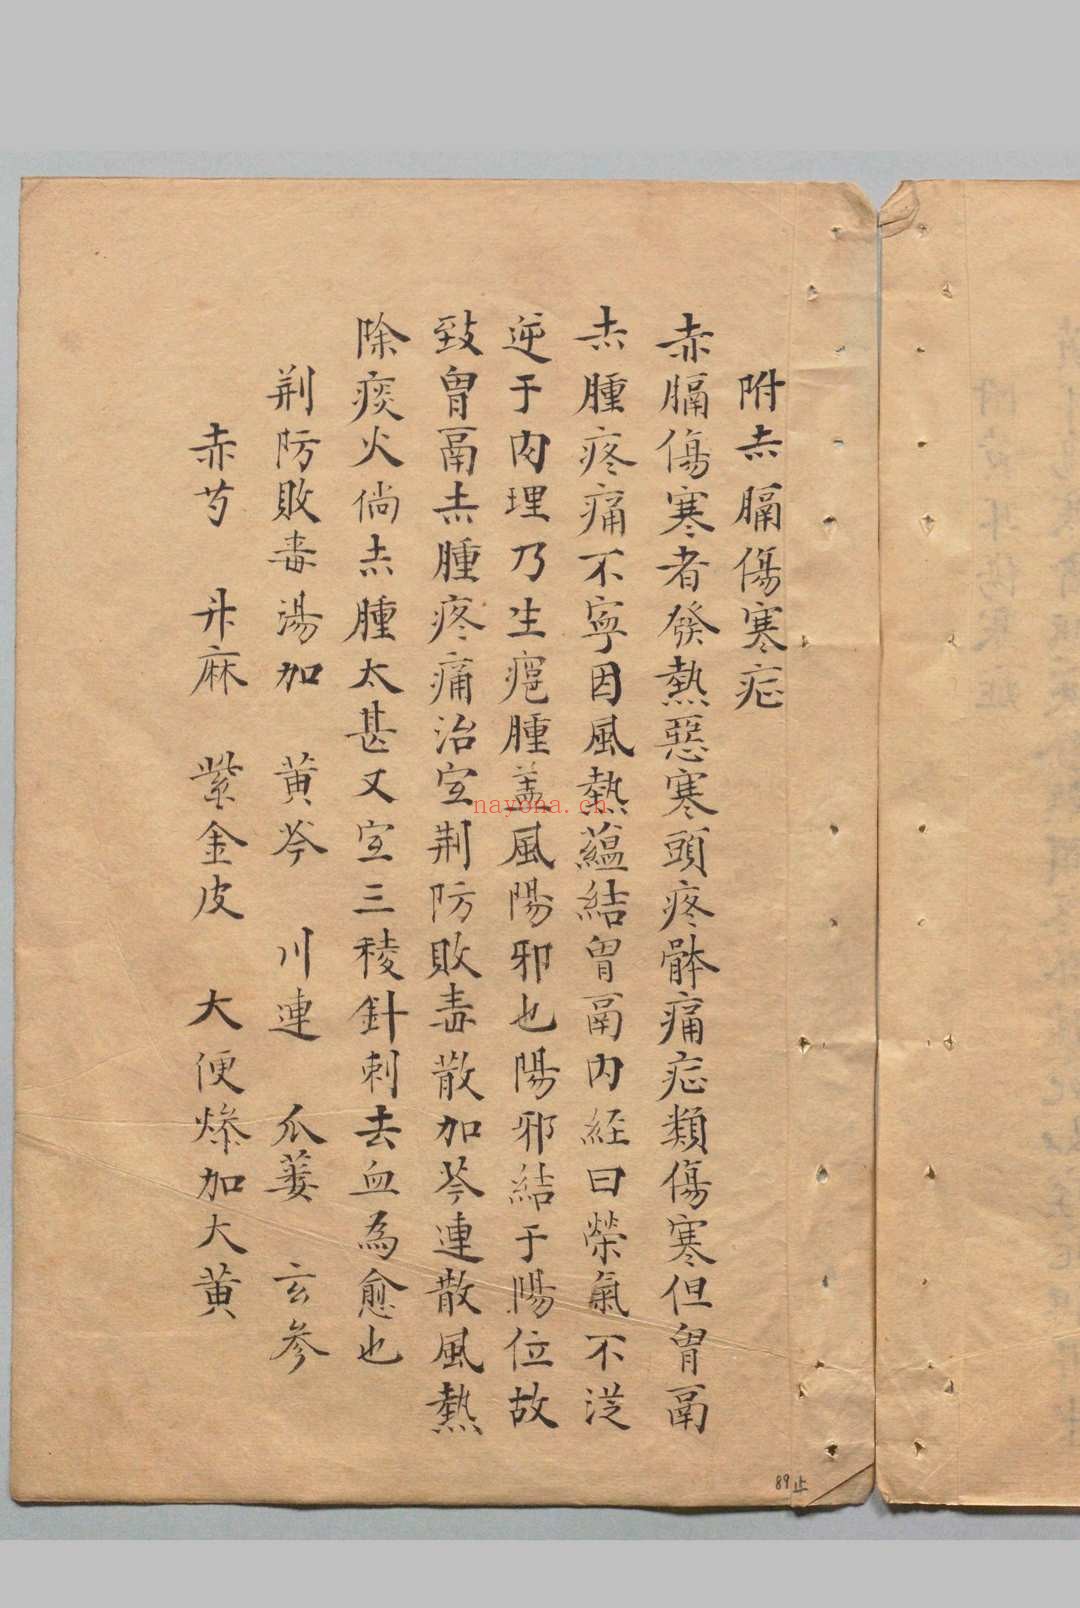 附赤膈傷寒症
赤膈傷寒者發熱惡寒頭疼骵痛症類傷寒但胷鬲
赤腫疼痛不寧因風熱蘊結胷鬲內經曰榮氣不從
逆于肉理乃生瘡腫盖風陽邪也陽邪結于陽位故
致胷鬲赤腫疼痛治宜荆防敗毒散加芩連散風熱
除痰火倘赤腫太甚又宜三稜針刺去血為愈也
荆防敗毒湯加 黄芩 川連 瓜蒌 玄参
赤芍 升麻 紫金皮 大便燥加大黄
nayona.cn
89止